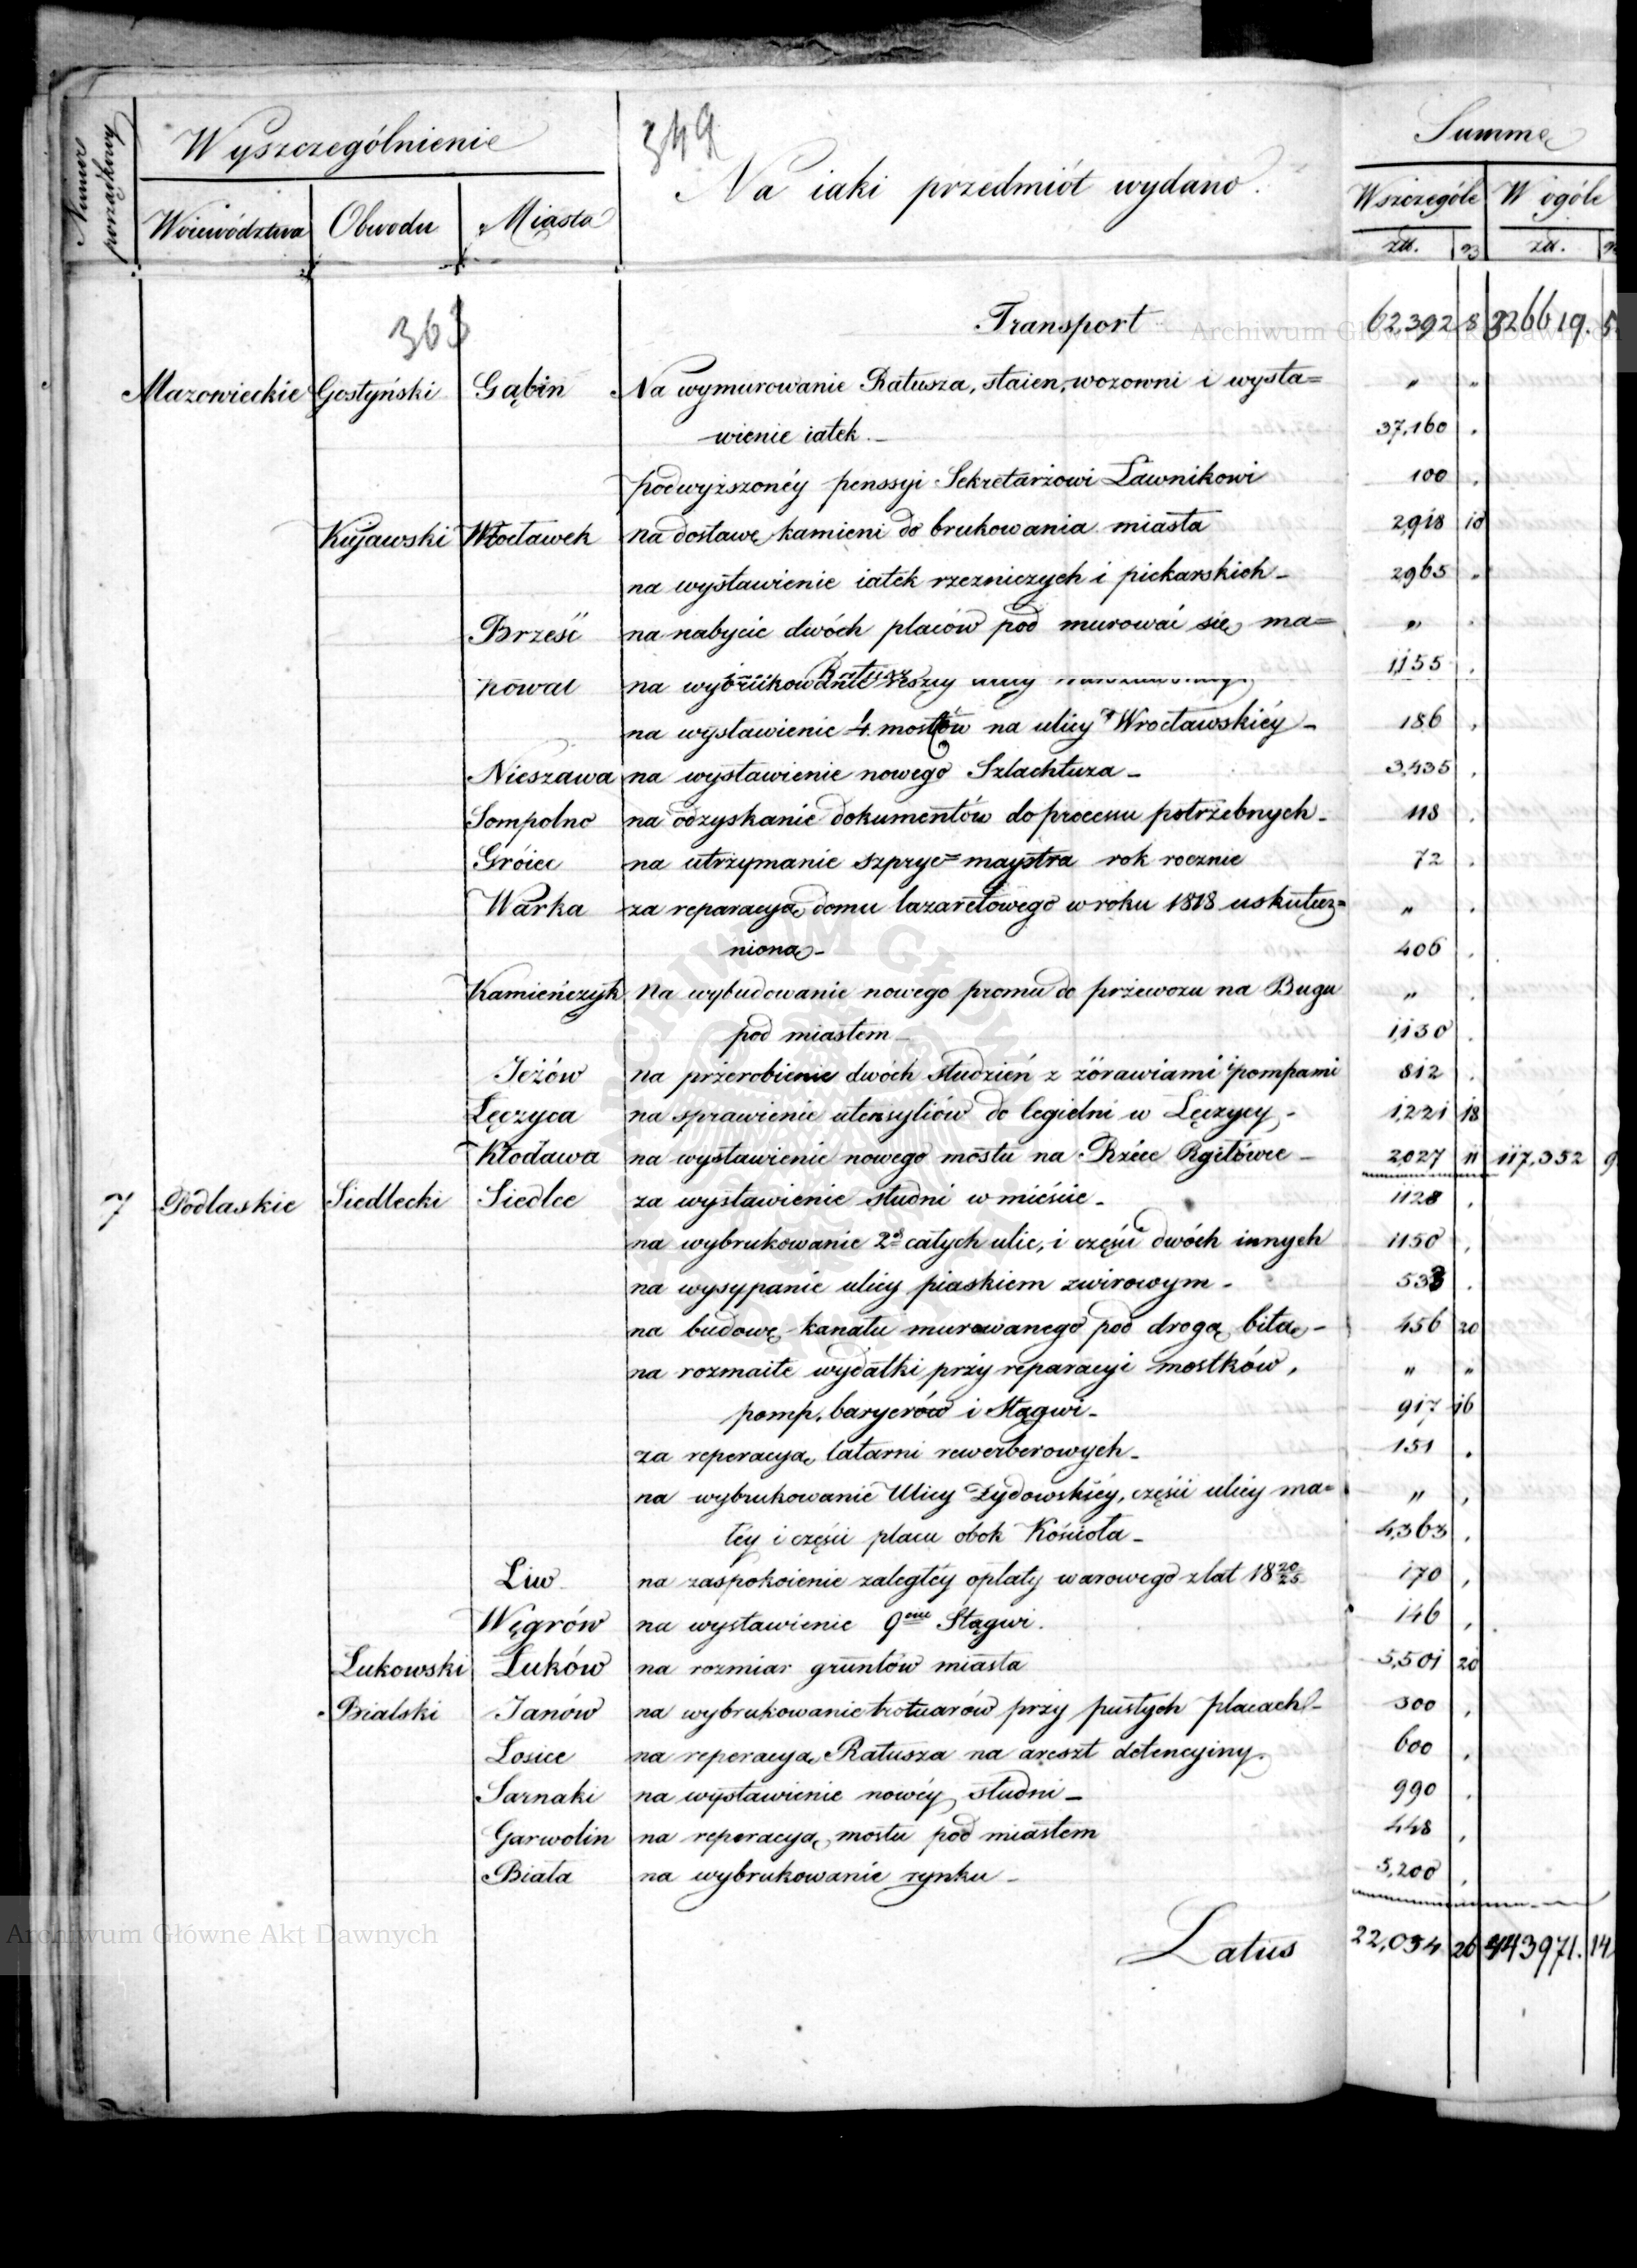 Numer porządkowy
Wyszczególnienie
349
Na iaki przedmiót wydano.
Summa
Woiewództwa Obwodu Miasta
Wszczególe W ogóle
zł. zł.
363
Transport 62,392 8 326619. 5
Archiwum Główne Akt Dawnych
Mazowieckie Gostyński Gąbin Na wymurowanie Ratusza, staien, wozowni i wysta= " "
wienie iatek. 37,160 "
podwyższonéy penssyi Sekretarzowi Ławnikowi 100 "
Kujawski Włocławek na dostawę kamieni do brukowania miasta 2,918 10
na wystawienie iatek rzezniczych i piekarskich 2965 "
Brześć na nabycie dwóch placów pod murować się ma= "
Ratusz
Kowal na wybrukowanie reszty ulicy 1155
na wystawienie 4. mostów na ulicy Wrocławskiéy 186 "
Nieszawa na wystawienie nowego Szlachtuza 3,435 "
Sompolno na odzyskanie dokumentów do processu potrzebnych 118
Gróiec na utrzymanie szpryc=maystra rok rocznie 72
Warka za reparacyą domu lazaretowego w roku 1818 uskutecz= "
nioną 406
Kamieńczyk Na wybudowanie nowego promu do przewozu na Bugu "
pod miastem 1,130
Jeżów na przerobienie dwóch studzień z żórawiami i pompami 812
Łęczyca na sprawienie utensyliów do cegielni w Łęczycy 1,221 18
Kłodawa na wystawienie nowego mostu na Rzéce Rgilówce 2,027 11 117,352 9
7 Podlaskie Siedlecki Siedlce za wystawienie studni w mieście 1128 "
na wybrukowanie 2ch całych ulic, i części dwóch innych 1150 "
na wysypanie ulicy piaskiem zwirowym 533
na budowę kanału murowanego pod drogą bitą 456 20
na rozmaite wydatki przy reparacyi mostków, " "
pomp, baryerów i Stągwi 917 16
za reperacyą latarni rewerberowych 151
na wybrukowanie Ulicy Żydowskiéy, części ulicy ma= " "
łéy i części placu obok Kościoła 4,363 "
Liw na zaspokoienie zaległéy opłaty warowego z lat 18 20/25 170 "
Węgrów na wystawienie 9ciu Stągwi. 146 "
Łukowski Łuków na rozmiar gruntów miasta 5,501 20
Bialski Janów na wybrukowanie trotuarów przy pustych placach 300 "
Łosice na reperacyą Ratusza na areszt detencyiny 600 "
Sarnaki na wystawienie nowéy studni 990
Garwolin na reperacyą mostu pod miastem 448 "
Biała na wybrukowanie rynku 5,200 "
Latus 22,054 26 443971. 14
Archiwum Główne Akt Dawnych
ARCHIWUM GŁÓWNE AKT DAWNYCH